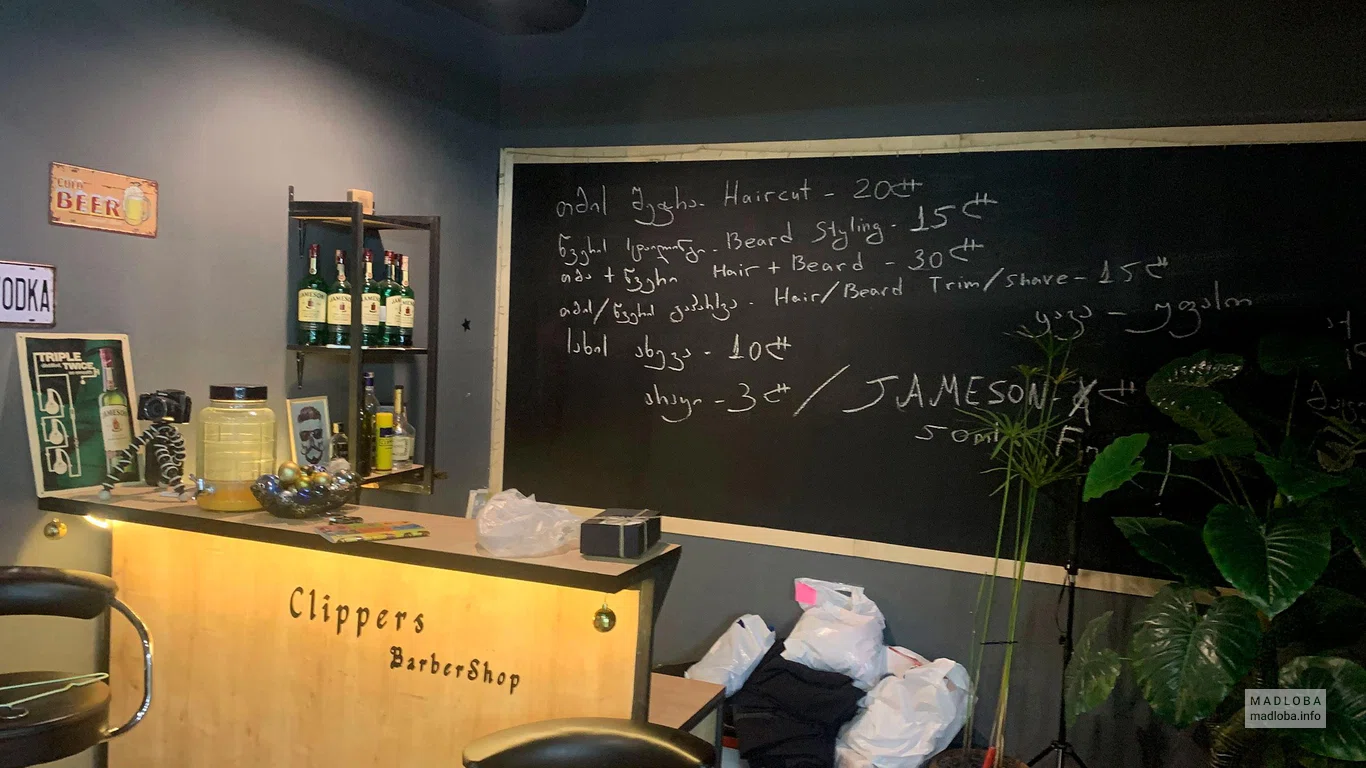 COLD
BEER
ODKA
TRIPLE
TWICE
JAMESON
JAMESON
JAMESON
JAMESON
თმის შეჭრა - Haircut - 20₾
წვერის სტაილინგი - Beard Styling - 15₾
თმა + წვერი Hair + Beard - 30₾
თმის/წვერის გაპარსვა - Hair/Beard Trim/Shave - 15₾
ყავა - უფასო
სახის ახევა - 10₾
არაყი - 3₾ / JAMESON - ₾
50ml
Clippers
BarberShop
MADLOBA
madloba.info